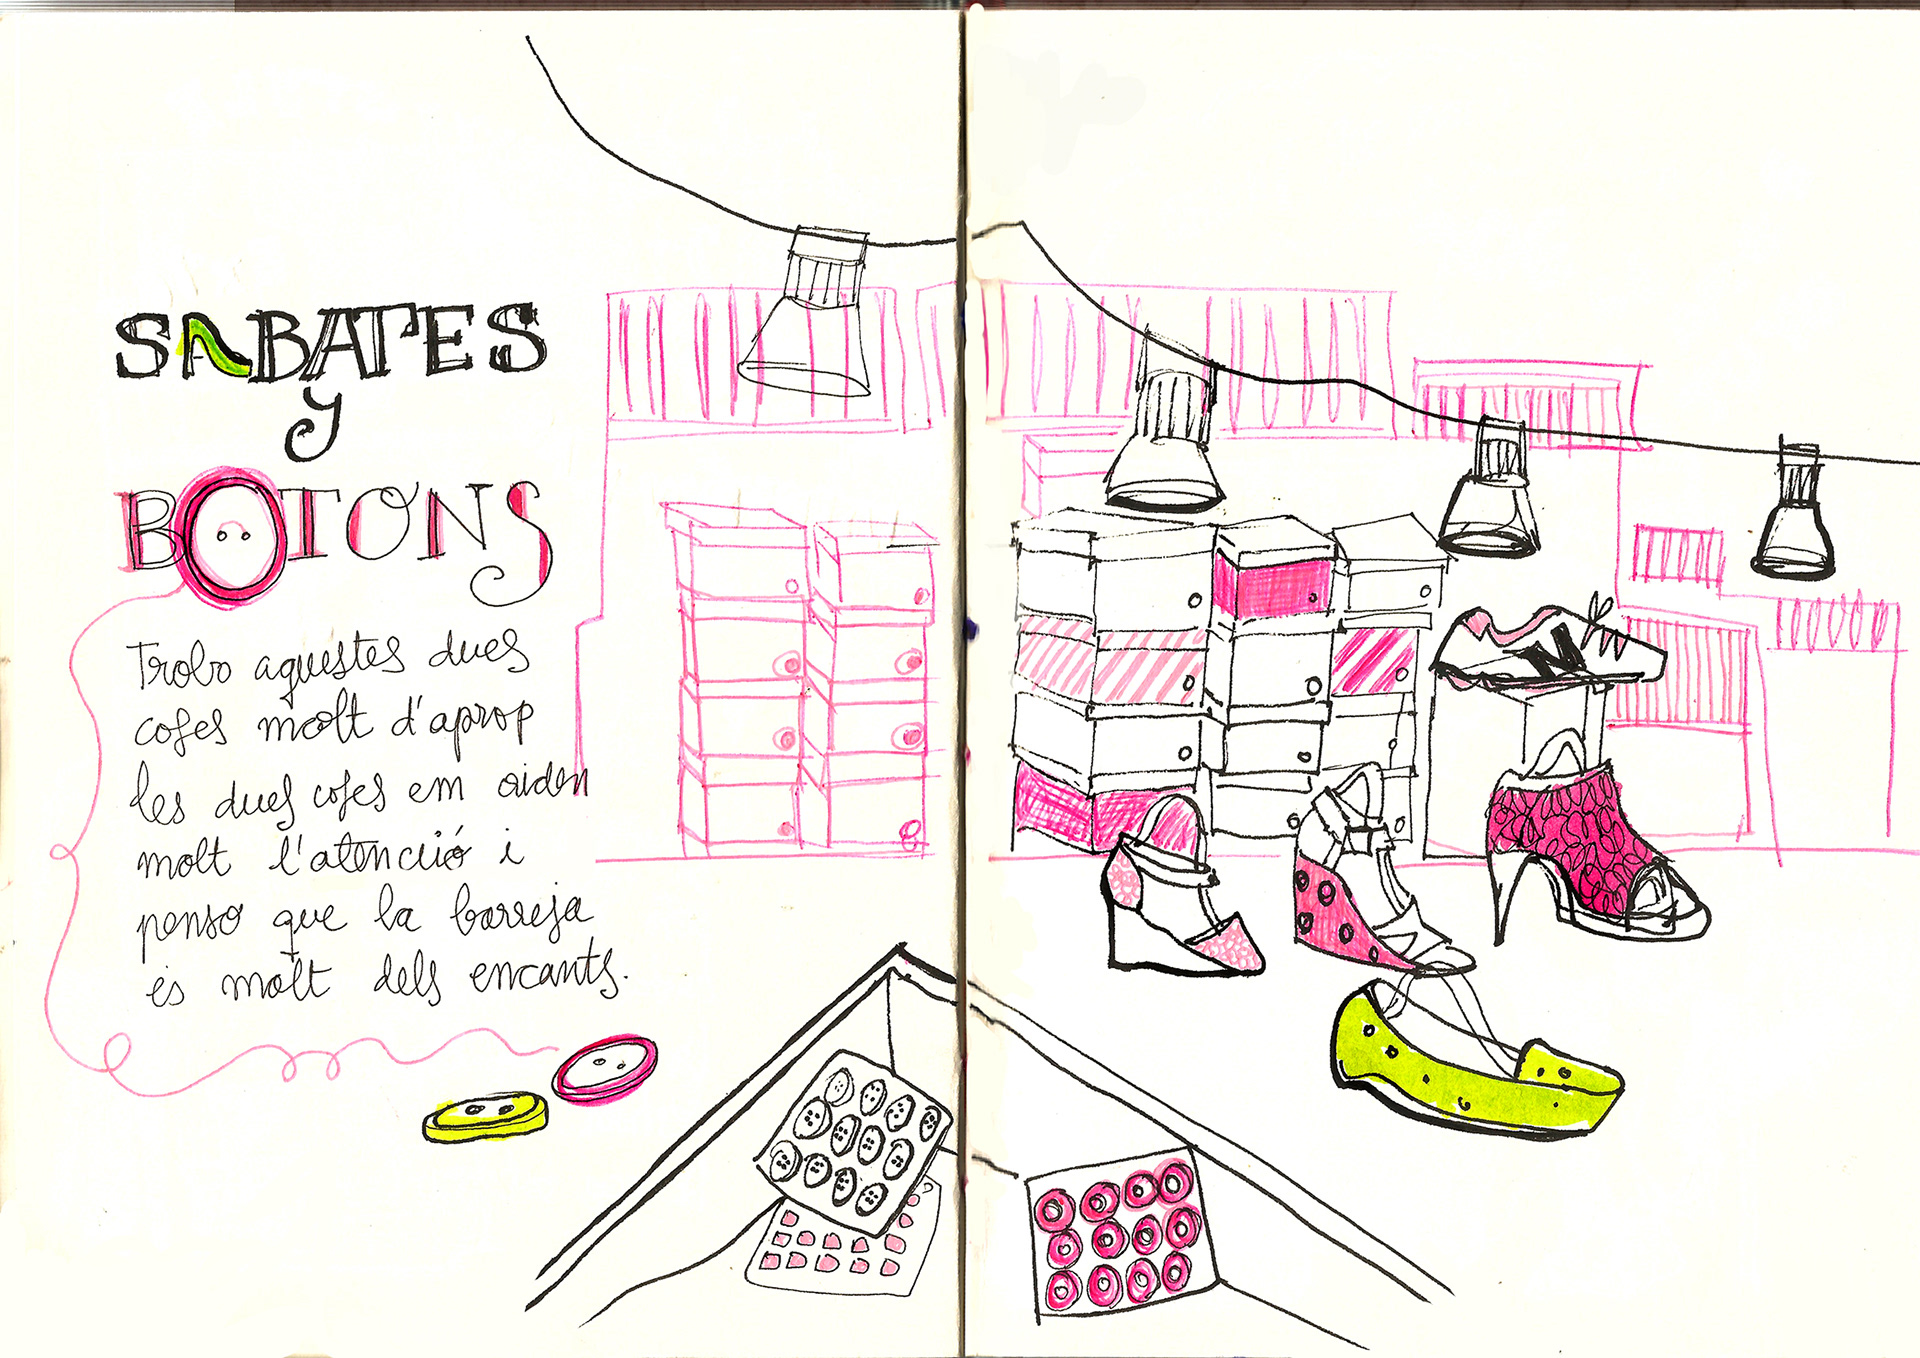 SABATES
y
BOTONS
Trobo aquestes dues
coses molt d'aprop
les dues coses em criden
molt l'atenció i
penso que la barreja
és molt dels encants.
N